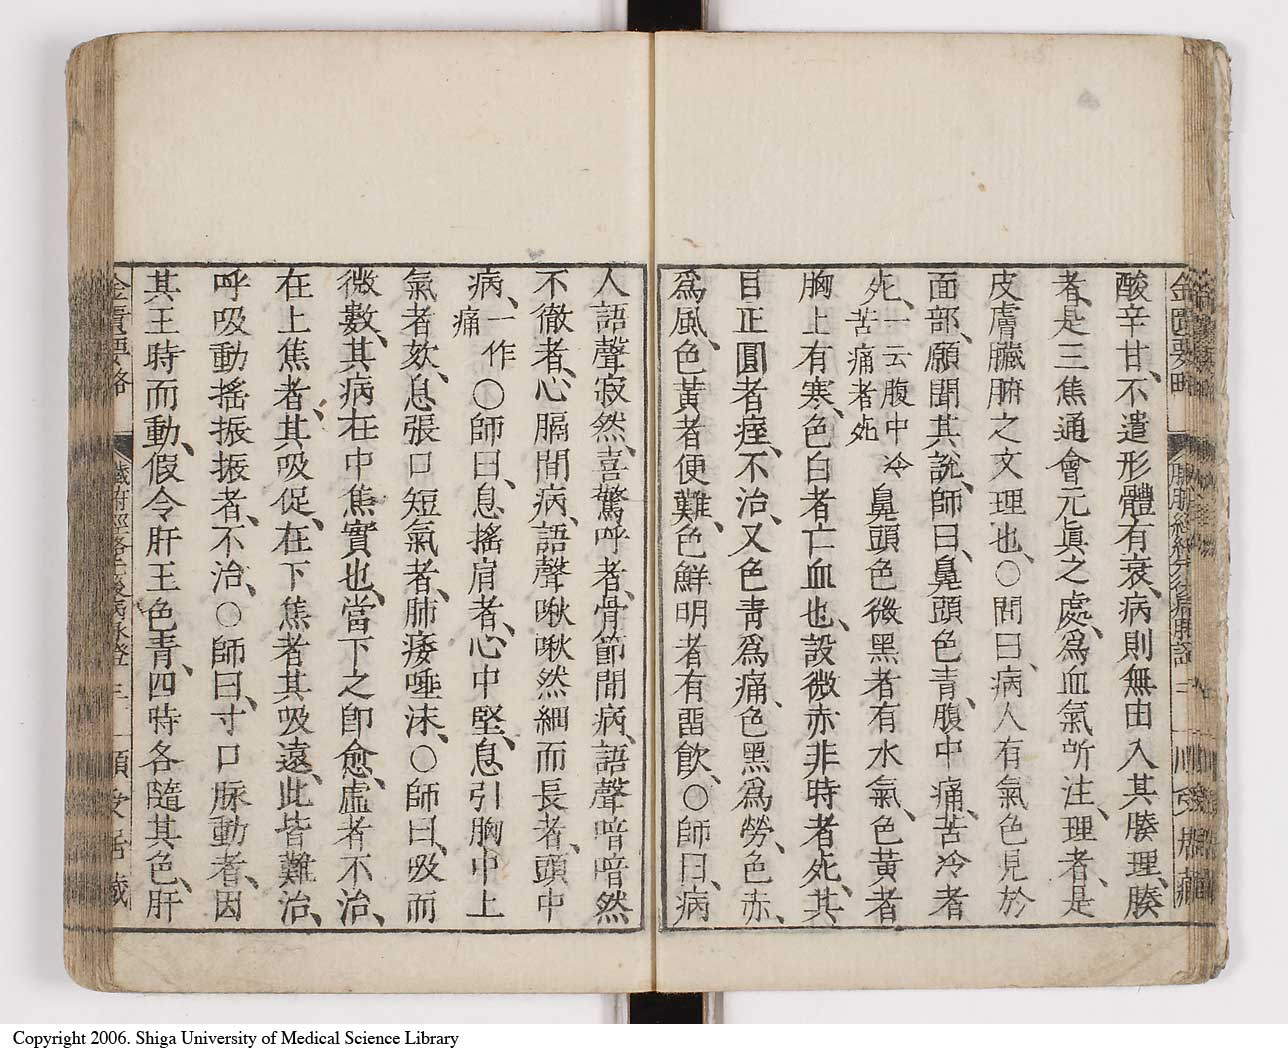 金匱要略
酸辛甘、不遣形體有衰、病則無由入其腠理、腠
者、是三焦通會元眞之處、爲血氣所注、理者、是
皮膚臟腑之文理也、〇問曰、病人有氣色見於
面部、願聞其說、師曰、鼻頭色青、腹中痛、苦冷者
死、一云腹中冷苦痛者死 鼻頭色微黑者有水氣、色黃者
胸上有寒、色白者亡血也、設微赤非時者死、其
目正圓者痙、不治、又色青爲痛、色黑爲勞、色赤、
爲風、色黃者便難、色鮮明者有畱飮、〇師曰、病
人語聲寂然、喜驚呼者、骨節間病、語聲喑喑然
不徹者、心膈間病、語聲啾啾然細而長者、頭中
病、一作痛 〇師曰、息搖肩者、心中堅、息引胸中上
氣者欬、息張口短氣者、肺痿唾沫、〇師曰、吸而
微數、其病在中焦實也、當下之卽愈、虛者不治、
在上焦者、其吸促、在下焦者其吸遠、此皆難治、
呼吸動搖振振者、不治、〇師曰、寸口脉動者、因
其王時而動、假令肝王色青、四時各隨其色、肝
Copyright 2006. Shiga University of Medical Science Library